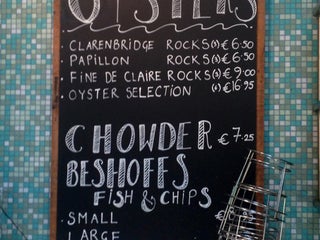 OYSTERS
· CLARENBRIDGE ROCKS(5) €6.50
· PAPILLON ROCKS(5) €6.50
· FINE DE CLAIRE ROCKS(5) €9.00
· OYSTER SELECTION €16.95
CHOWDER €7.25
BESHOFFS
FISH & CHIPS
· SMALL
· LARGE